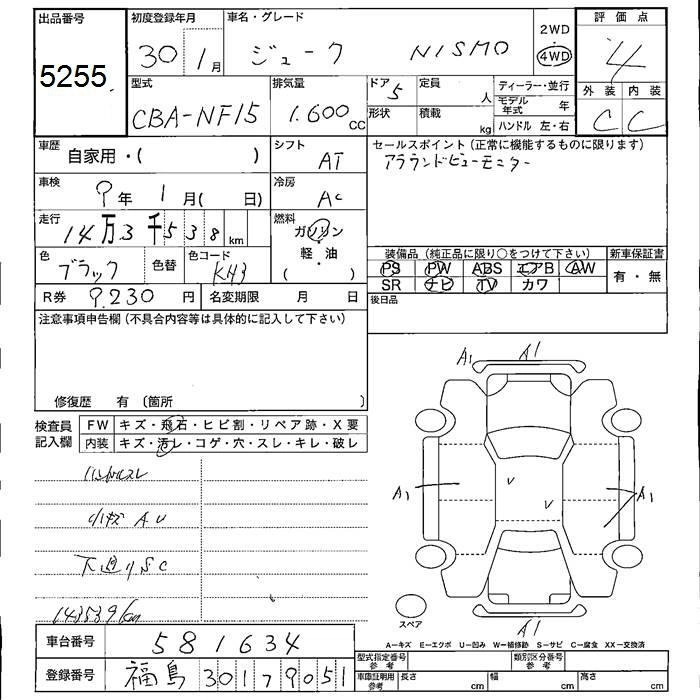 出品番号
5255
初度登録年月
30年 1月
車名・グレード
ジューク NISMO
2WD
4WD
評価点
4
型式
CBA-NF15
排気量
1.600 CC
ドア
5
形状
定員
人
積載
kg
ディーラー・並行
モデル年式 年
ハンドル 左・右
外装 内装
C C
車歴
自家用・( )
シフト
AT
セールスポイント(正常に機能するものに限ります)
アラウンドビューモニター
車検
9年 1月( 日)
冷房
AC
走行
14万3千538 km
燃料
ガソリン
軽・油
( )
色
ブラック
色替
色コード
KH3
装備品(純正品に限り○をつけて下さい)
新車保証書
PS PW ABS エアB AW
SR ナビ TV カワ
有・無
R券 9.230円
名変期限 月 日
後日品
注意事項申告欄(不具合内容等は具体的に記入して下さい)
修復歴 有(箇所 )
検査員記入欄
FW キズ・飛石・ヒビ割・リペア跡・X要
内装 キズ・汚レ・コゲ・穴・スレ・キレ・破レ
小キズ AU
下廻りSC
143539km
A1 A1
A1
A1
A1
スペア
A-キズ E-エクボ U-凹み W-補修跡 S-サビ C-腐食 XX-交換済
車台番号
581634
登録番号
福島 301 79051
型式指定番号 参考
類別区分番号 参考
車庫証明用 参考
長さ cm
幅 cm
高さ cm